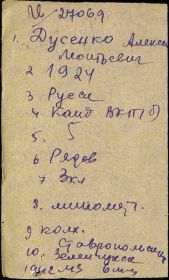 № 27069
1. Дусенко Алексей
Моисеевич
2 1924
3 Русск
4 Канд ВКП(б)
5. 5
6 Рядов
7 Экл
8. миномет.
9 колх.
10. Ставропольский
Зеленчукск